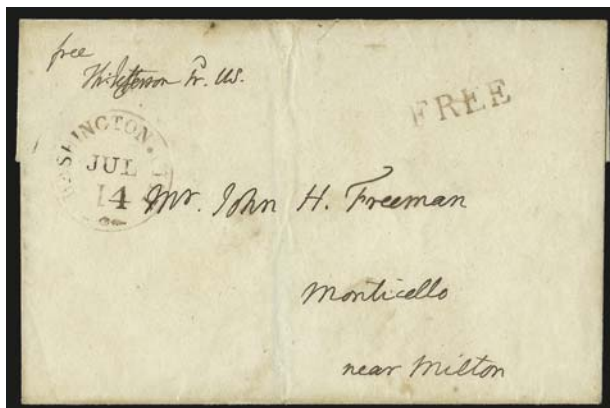 free
Th: Jefferson Pr. US.
FREE
WASHINGTON.
JUL
14
Mr. John H. Freeman
Monticello
near Milton